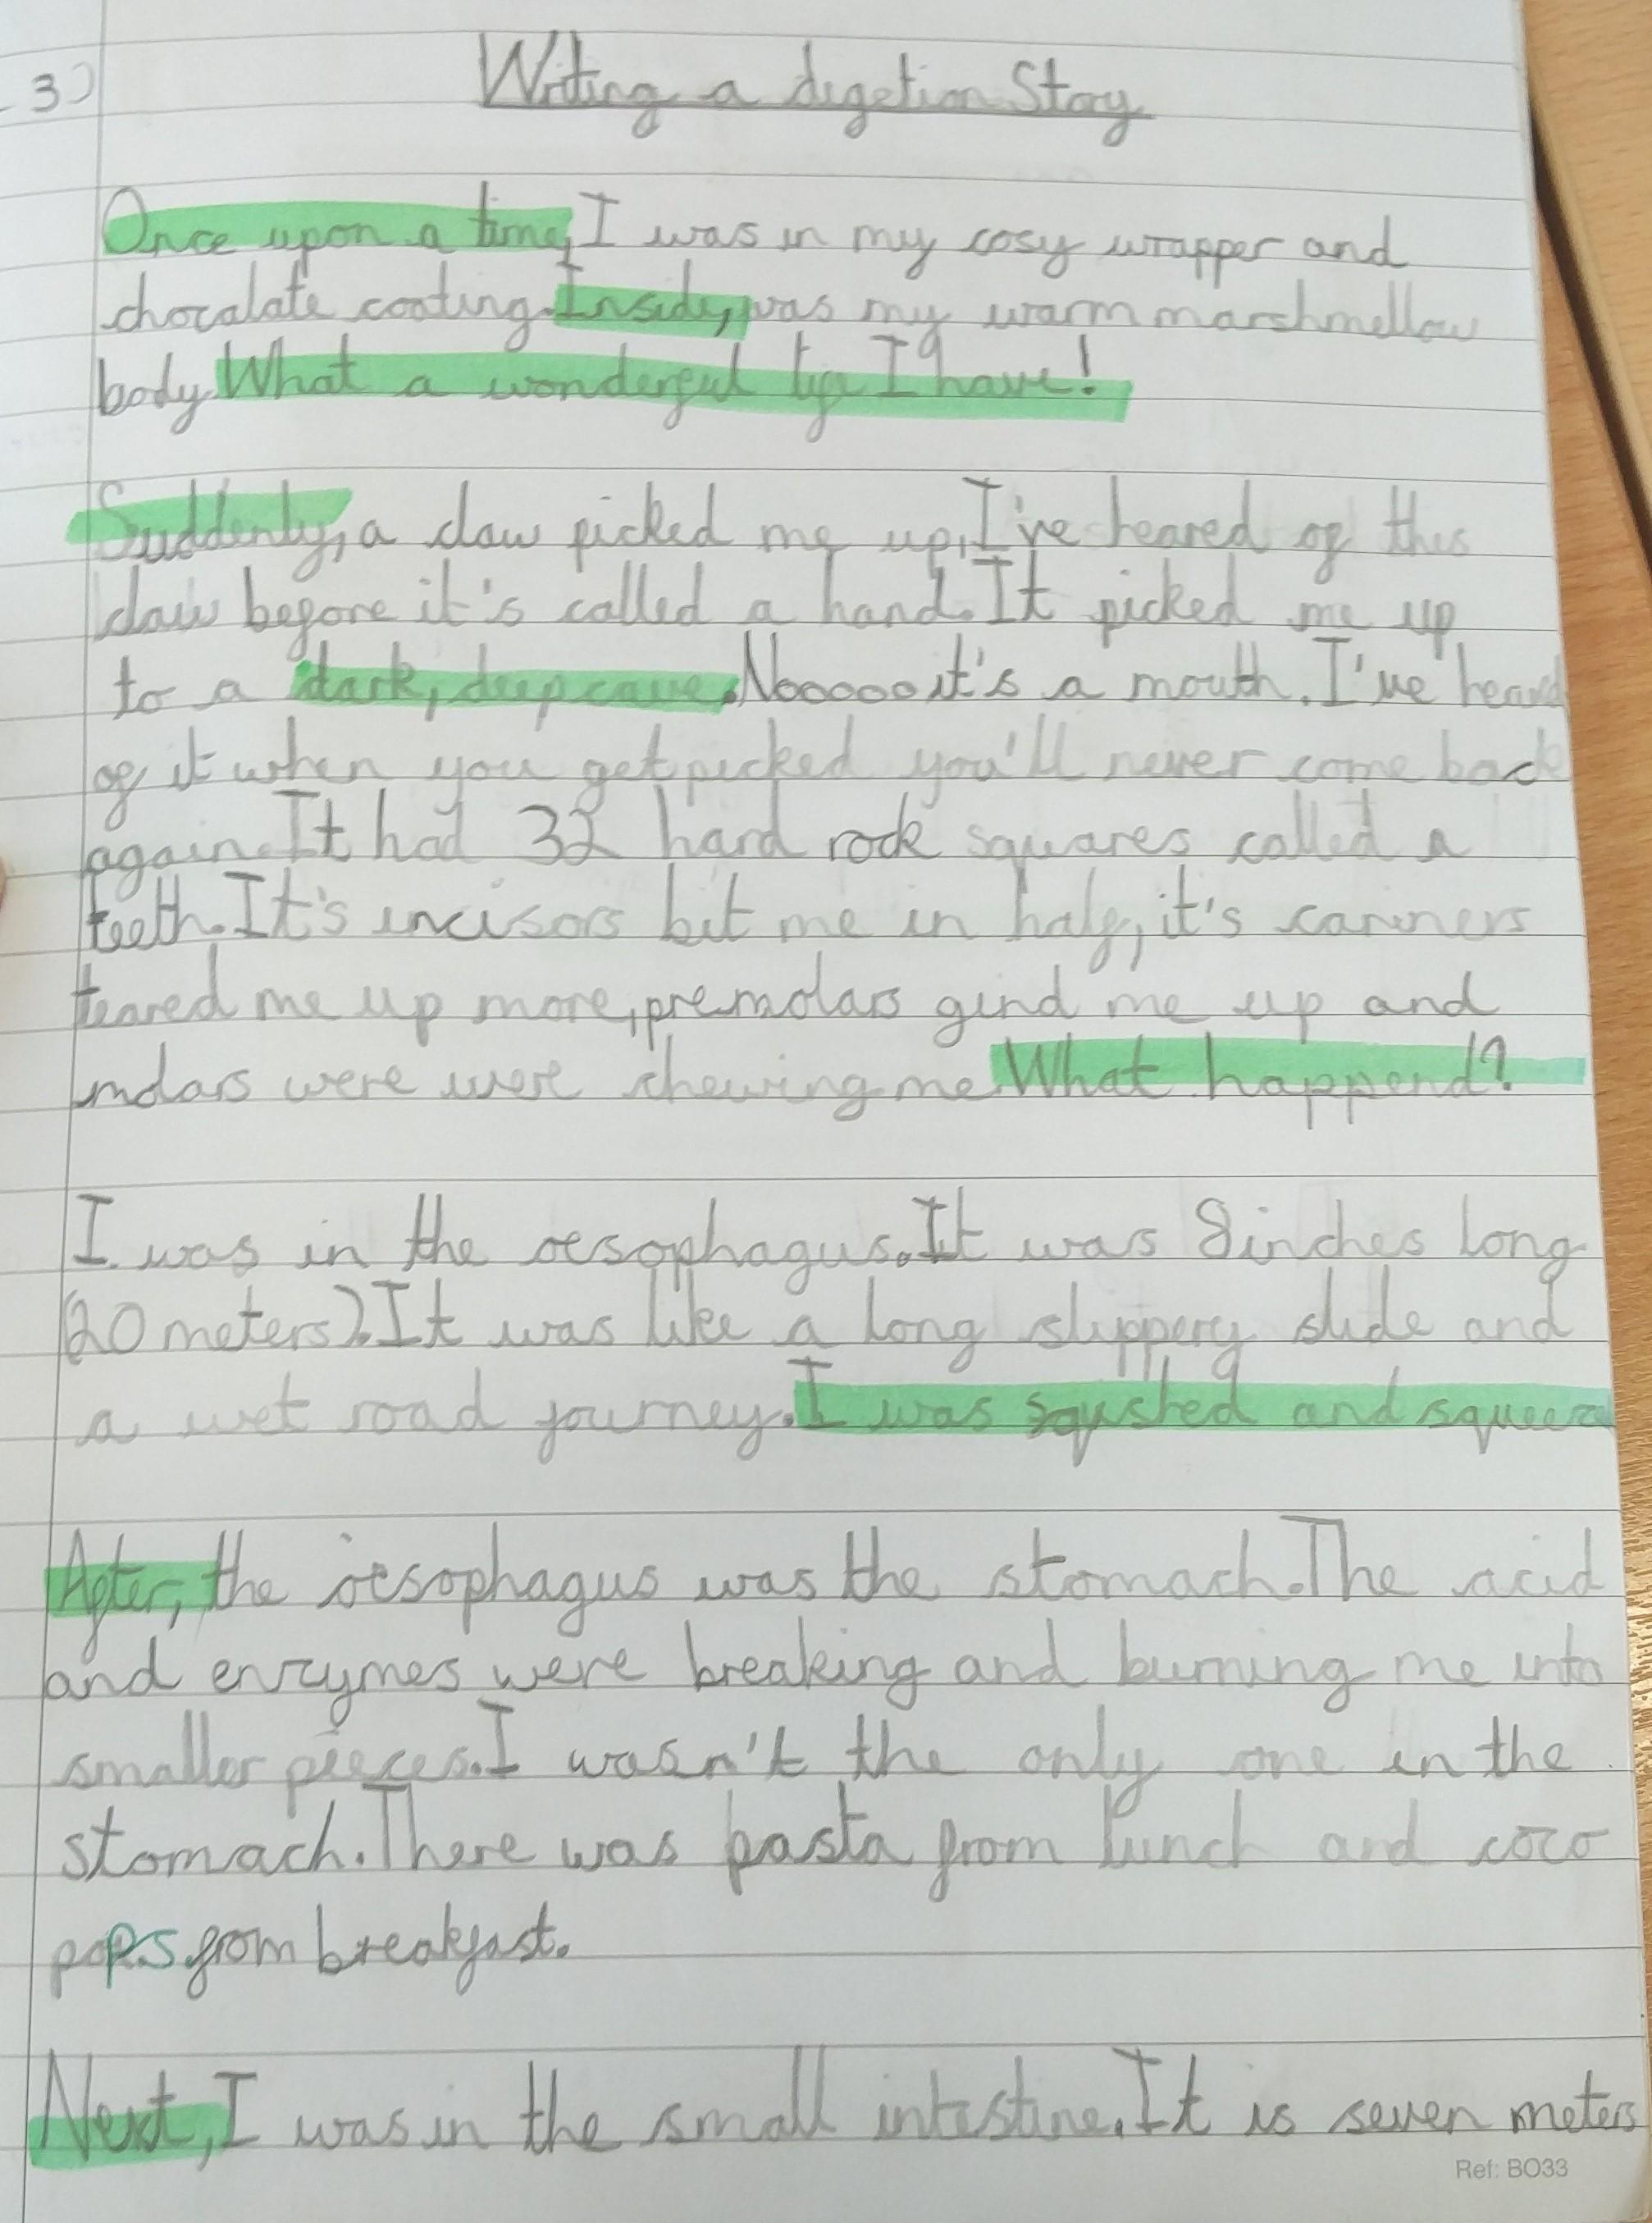 3)
Writing a digetion Story
Once upon a time, I was in my cosy wrapper and
chocalate coating. Inside, was my warm marshmellow
body. What a wonderful life I have!
Suddenly, a claw picked me up, I've heared of this
claw before it's called a hand. It picked me up
to a dark, deep cave. Nooooo it's a mouth. I've heard
of it when you get picked you'll never come back
again. It had 32 hard rock squares called a
teeth. It's incisors bit me in half, it's canners
teared me up more, premolars gind me up and
molars were were chewing me. What happend?
I was in the oesophagus. It was 8 inches long
(20 meters). It was like a long slippery slide and
a wet road journey. I was squshed and
After, the oesophagus was the stomach. The acid
and enzymes were breaking and burning me into
smaller pieces. I wasn't the only one in the
stomach. There was pasta from lunch and coco
pops from breakfast.
Next, I was in the small intestine. It is seven meters
Ref: BO33